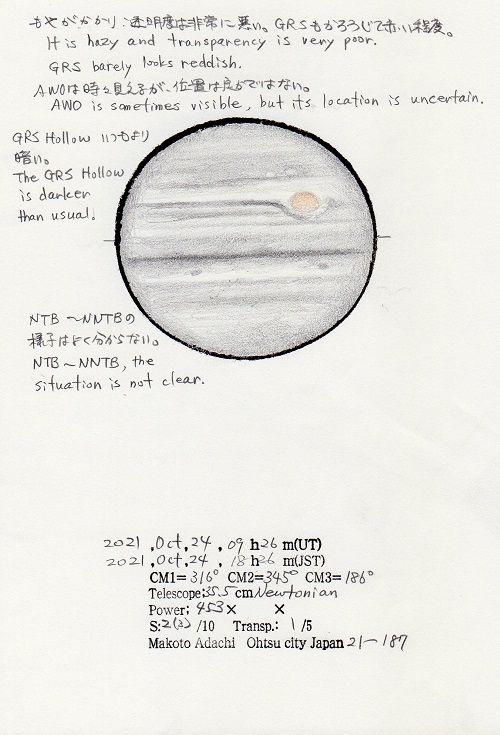 もやがかかり、透明度は非常に悪い。GRSもかろうじて赤い程度。
It is hazy and transparency is very poor.
GRS barely looks reddish.
AWOは時々見えるが、位置は良かではない。
AWO is sometimes visible, but its location is uncertain.
GRS Hollow いつもより
暗い。
The GRS Hollow
is darker
than usual.
NTB～NNTBの
様子はよく分からない。
NTB～NNTB, the
situation is not clear.
2021, Oct, 24, 09 h 26 m(UT)
2021, Oct, 24, 18 h 26 m(JST)
CM1= 316° CM2= 345° CM3= 186°
Telescope; 35.5 cm Newtonian
Power; 453 × ×
S: 2(3) /10 Transp.: 1 /5
Makoto Adachi Ohtsu city Japan 21-187